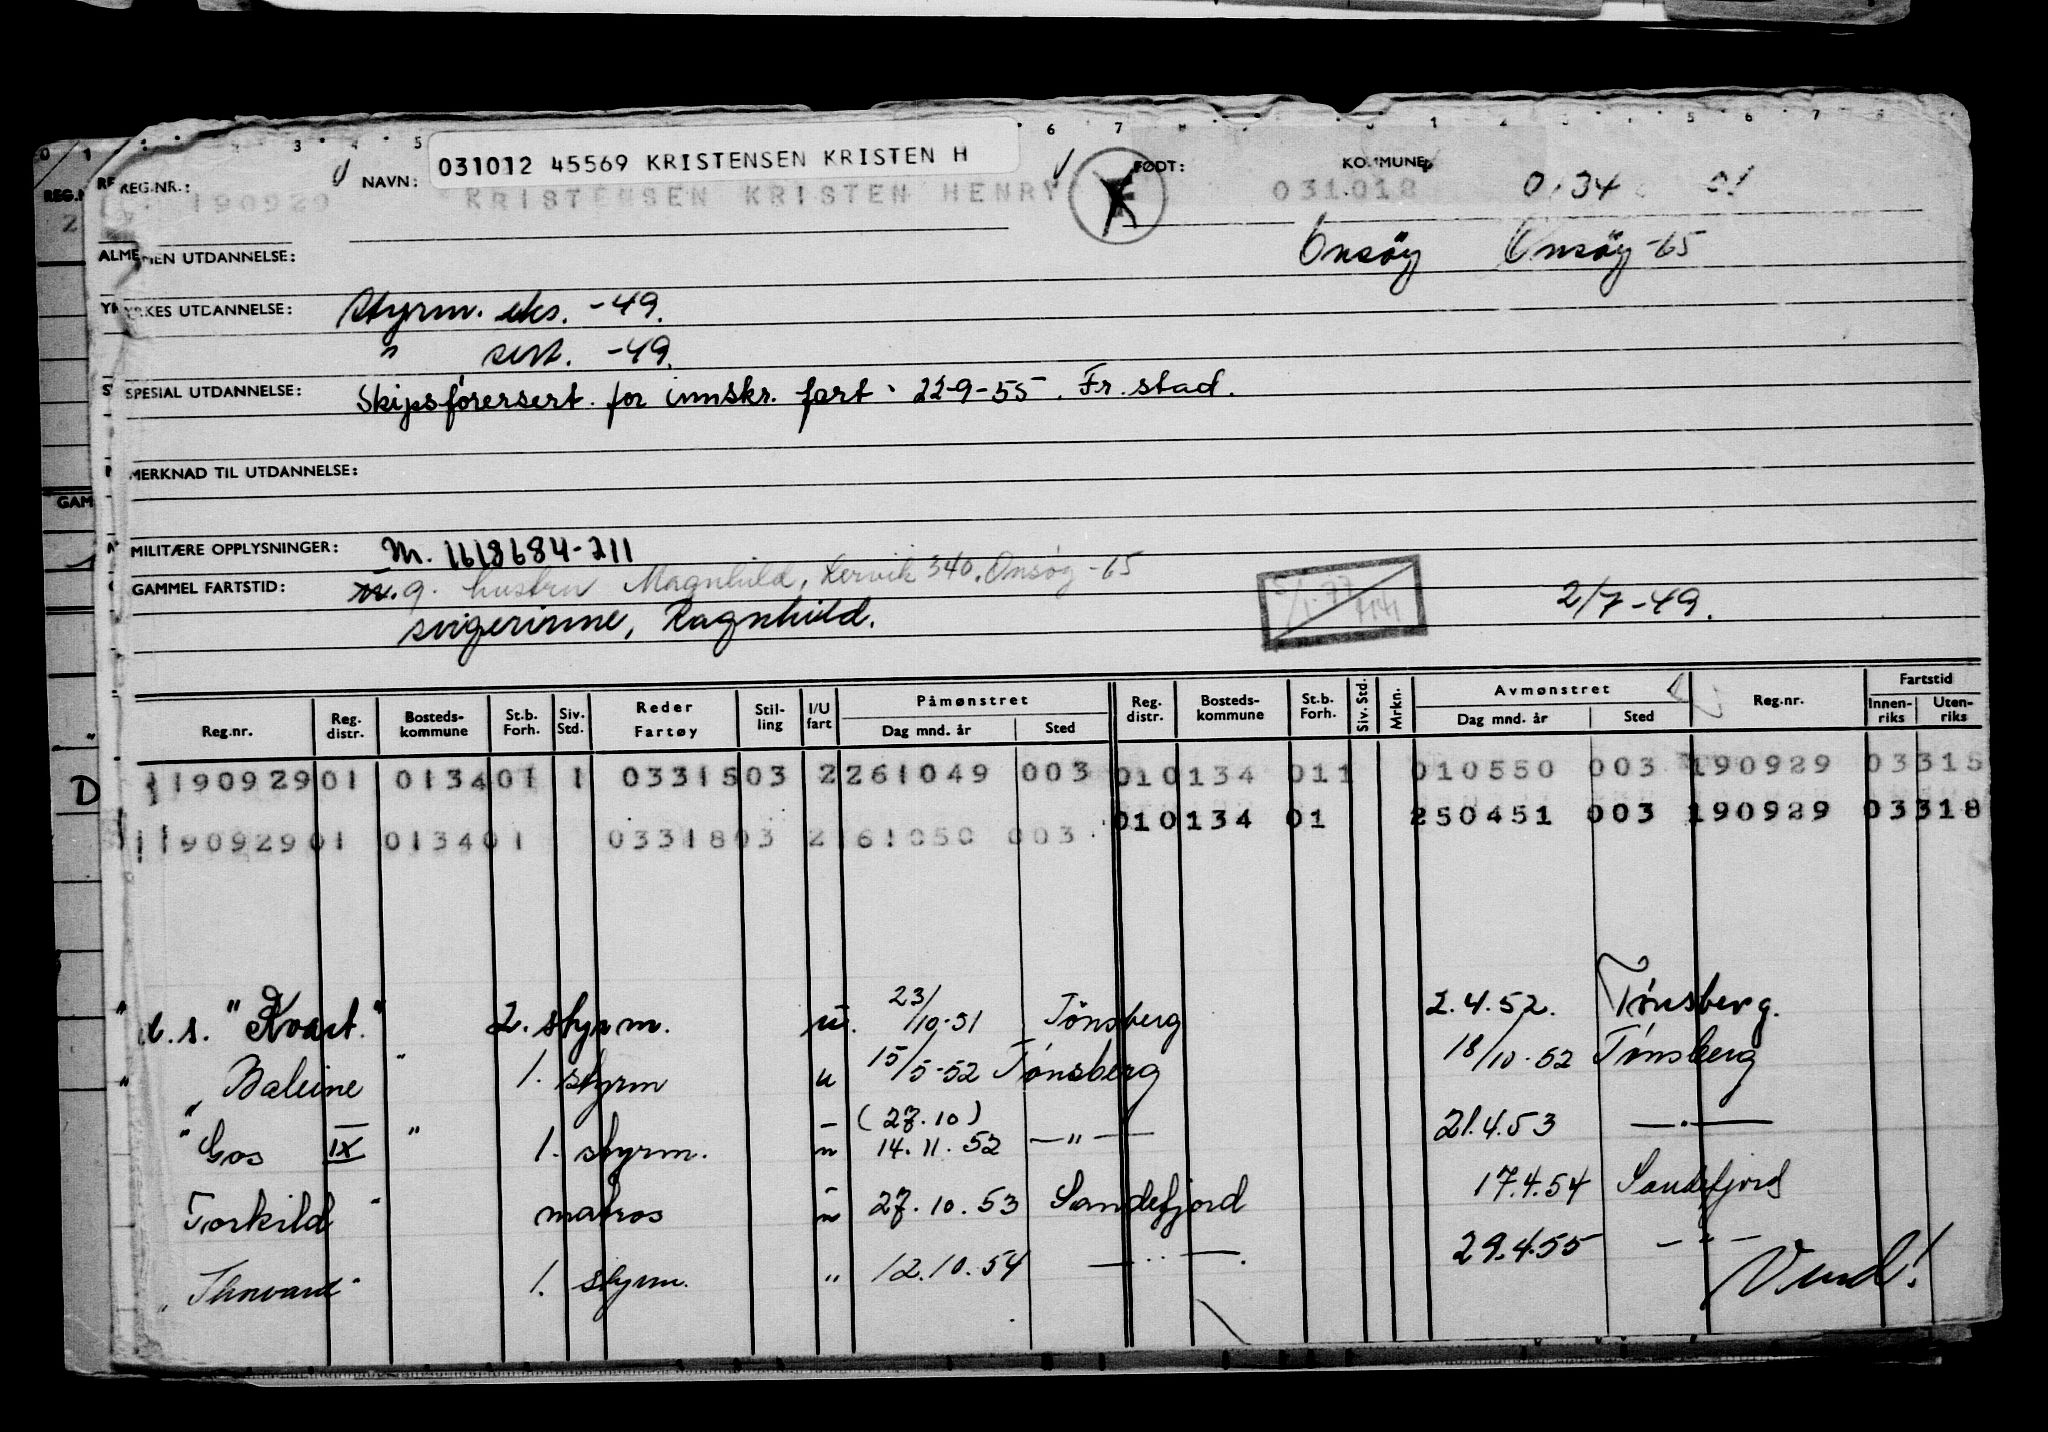 031012 45569 KRISTENSEN KRISTEN H
REG.NR.: 190929 NAVN: KRISTENSEN KRISTEN HENRY FØDT: 031018 KOMMUNE: 0134 01
Onsöy Onsöy -65
ALMEN UTDANNELSE:
YRKES UTDANNELSE: Styrm. eks. -49.
" sert. -49.
SPESIAL UTDANNELSE: Skipsförersert. for innskr. fart. 22-9-55. Fr.stad.
MERKNAD TIL UTDANNELSE:
MILITÆRE OPPLYSNINGER: M. 1618684-211
GAMMEL FARTSTID: g. hustru Magnhild, Lervik 340, Onsøy -65
svigerinne, Ragnhild. 2/7-49.
Reg.nr. Reg. distr. Bosteds-kommune St.b. Forh. Siv. Std. Reder Fartøy Stil-ling I/U fart Påmønstret Dag mnd. år Sted Reg. distr. Bosteds-kommune St.b. Forh. Siv. Std. Mrkn. Avmønstret Dag mnd. år Sted Reg.nr. Fartstid Innen-riks Uten-riks
1190929 01 0134 01 1 03315 03 2 261049 003 01 0134 01 1 010550 003 190929 03315
01 0134 01 250451 003 190929 03318
1190929 01 0134 01 03318 03 2 161050 003
" b.s. "Kvart." 2. styrm. u. 23/10-51 Tönsberg 2.4.52. Tønsberg.
" " Baleine " 1. styrm u 15/5-52 Tønsberg 18/10-52 Tønsberg
" Gos IX " 1. styrm. " (27.10) 14.11.52 —"— 21.4.53 —"—
Torkild " matros " 27.10.53 Sandefjord 17.4.54 Sandefjord
" Thorvard " 1. styrm. " 12.10.54 —"— 29.4.55 —"—
Vend!